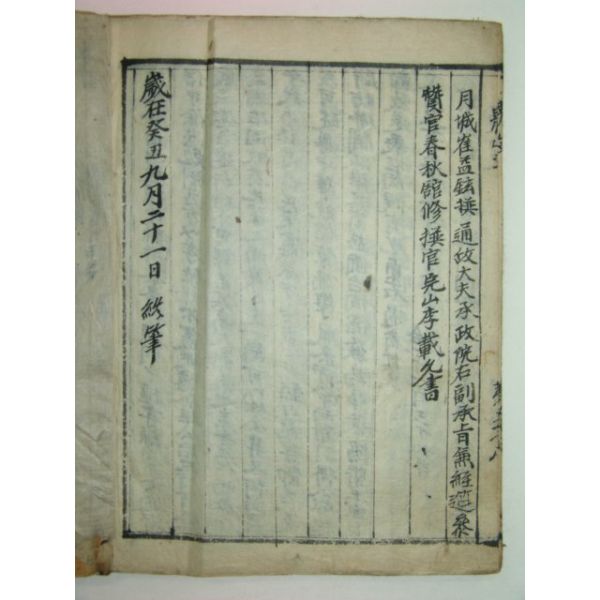 月城崔孟鉉撰 通政大夫承政院右副承旨兼經筵參
贊官春秋館修撰官完山李載久書
歲在癸丑九月二十一日 終筆